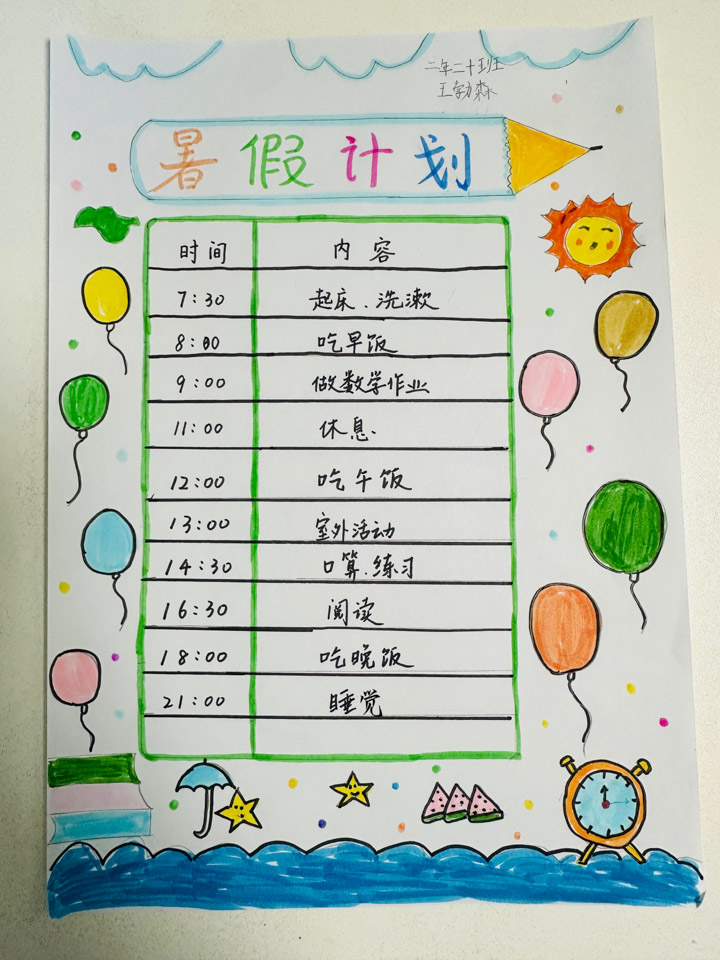 二年二十班
王勃森
暑假计划
时间 内容
7:30 起床、洗漱
8:00 吃早饭
9:00 做数学作业
11:00 休息.
12:00 吃午饭
13:00 室外活动
14:30 口算、练习
16:30 阅读
18:00 吃晚饭
21:00 睡觉